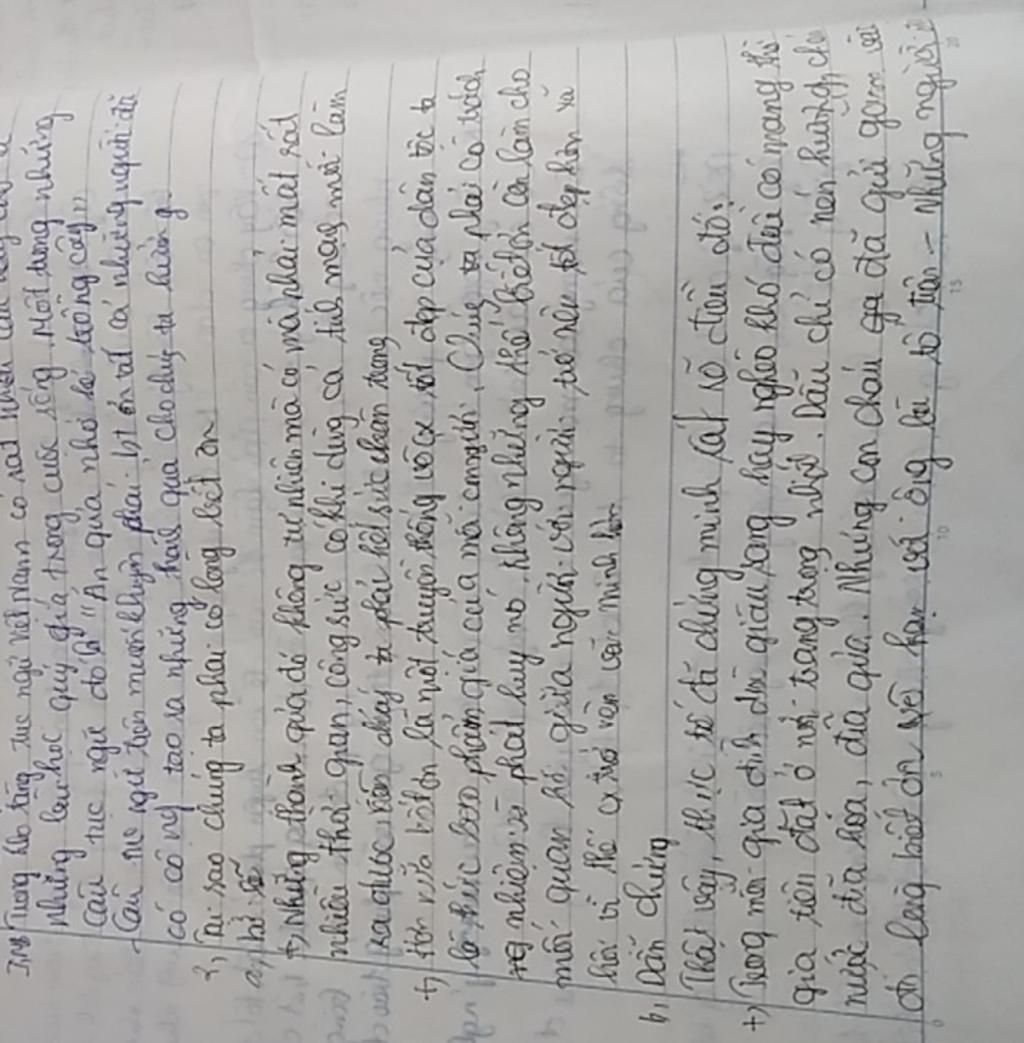 Trong kho tàng tục ngữ Việt Nam có rất nhiều câu
những bài học quý giá trong cuộc sống. Một trong những
câu tục ngữ đó là "Ăn quả nhớ kẻ trồng cây"
- Câu tục ngữ trên muốn khuyên phải biết ơn tất cả những người đã
có công tạo ra những thành quả cho chúng ta hưởng
2, Tại sao chúng ta phải có lòng biết ơn
a, Lí lẽ
+) Những thành quả đó không tự nhiên mà có mà phải mất rất
nhiều thời gian, công sức có khi dùng cả tính mạng mới làm
ra được nên chúng ta phải hết sức trân trọng
+) Hơn nữa biết ơn là một truyền thống tốt đẹp của dân tộc ta
là phẩm giá của mỗi con người. Chúng ta phải có trách
nhiệm phát huy nó, không những thế biết ơn còn làm cho
mối quan hệ giữa người với người trở nên tốt đẹp hơn xã
hội vì thế cx trở nên văn minh
b, Dẫn chứng
Thật vậy, thực tế đã chứng minh rất rõ điều đó:
+) Trong mỗi gia đình dù giàu sang hay nghèo khó đều có mang thờ
gia tiên đặt ở nơi trang trọng nhất. Dẫu chỉ có nén hương, chén
nước đĩa hoa, đĩa quả. Nhưng con cháu đã gửi gắm vào
đó lòng biết ơn vô hạn với ông bà tổ tiên - Những người